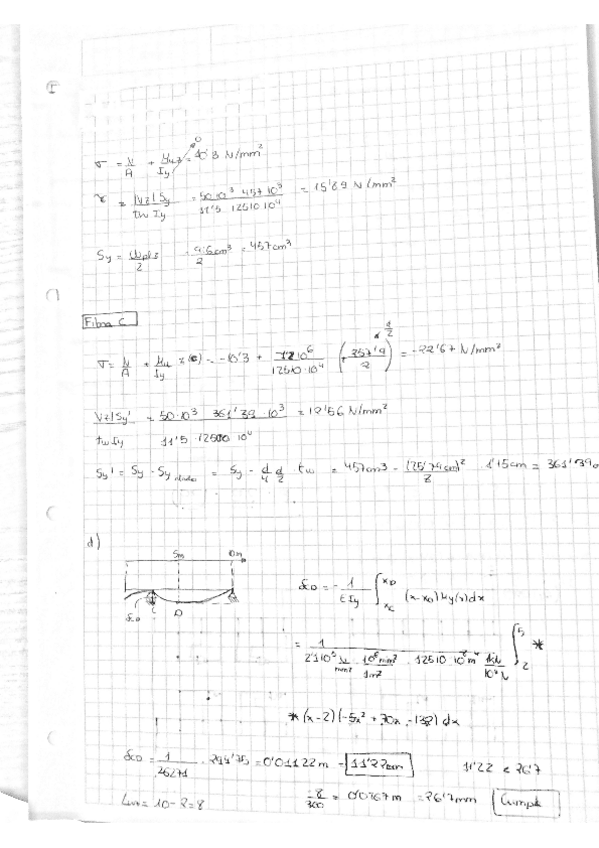 σ = N/A + My z/Iy = 10'3 N/mm²
0
τ = |Vz| Sy / tw Iy = 50·10³ · 457·10³ / 11'5 · 12510·10⁴ = 15'89 N/mm²
Sy = Wpl / 2 = cm³ / 2 = 457 cm³
Fibra C
σ = N/A + My/Iy z(c) = -10'3 + 10⁶ / 12510·10⁴ (257'9 / 2) = -22'67 N/mm²
d/2
|Vz| Sy' / tw Iy = 50·10³ · 361'39·10³ / 11'5 · 10⁴ = 12'56 N/mm²
Sy' = Sy - Sy = Sy - d/4 d/2 tw = 457cm³ - (25'79cm)² / 8 · 1'15cm = 361'39
d)
5m 10m
δCD
C
D
δCD = - 1 / E Iy ∫ xC xD (x-xD) My(x) dx
= 1 / 2'1·10⁵ N/mm² · 10⁶mm²/1m² · 12510·10⁻⁸ m⁴ · kN/10³N ∫ 2 5 *
* (x-2) (-5x² + 70x - 132) dx
δCD = 1 / 26271 · 294'75 = 0'01122 m = 11'22mm 11'22 < 26'7
L = 10-2=8 8/300 = 0'0267m = 26'7mm Cumple